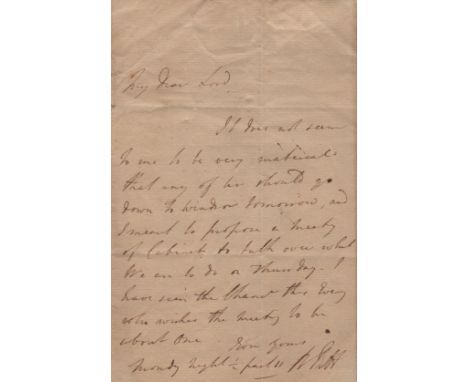 My dear Lord,
It does not seem
to me to be very material
that any of us should go
down to Windsor tomorrow, and
I meant to propose a Meetg
of Cabinet to talk over what
We are to do on Thursday. I
have seen the Chanr this Eveng
who wishes the Meetg to be
about One
Yours
Monday night ½ past 11 W Pitt